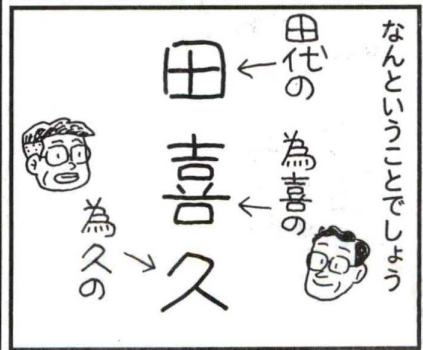 なんということでしょう
田代の
為喜の
田喜久
為久の